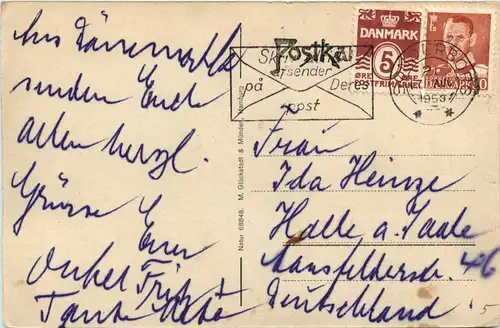 Aus Dänemark
senden Euch
allen herzl.
Grüsse Euer
Onkel Fritz
Tante
Postkarte
Skriv
afsender
på Deres
post
DANMARK
5
ØRE ØRE
POSTFRIMÆRKET
AUG
195
Natur 68848. M. Glückstadt & Münden, Hamburg
Frau
Ida Heinze
Halle a. Saale
Mansfelderstr. 46
Deutschland
5